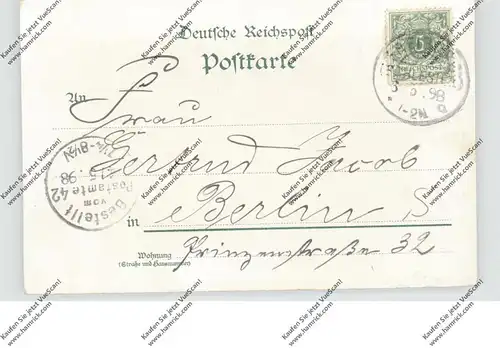 Deutsche Reichspost
Postkarte
An
Frau
Jacob
in Berlin S
Wohnung
(Straße und Hausnummer)
Prinzenstraße 32
5
98
1-2N
Bestellt
vom
Postamte 42
98
-8½N
Kaufen Sie jetzt VueScan!
www.hamrick.com